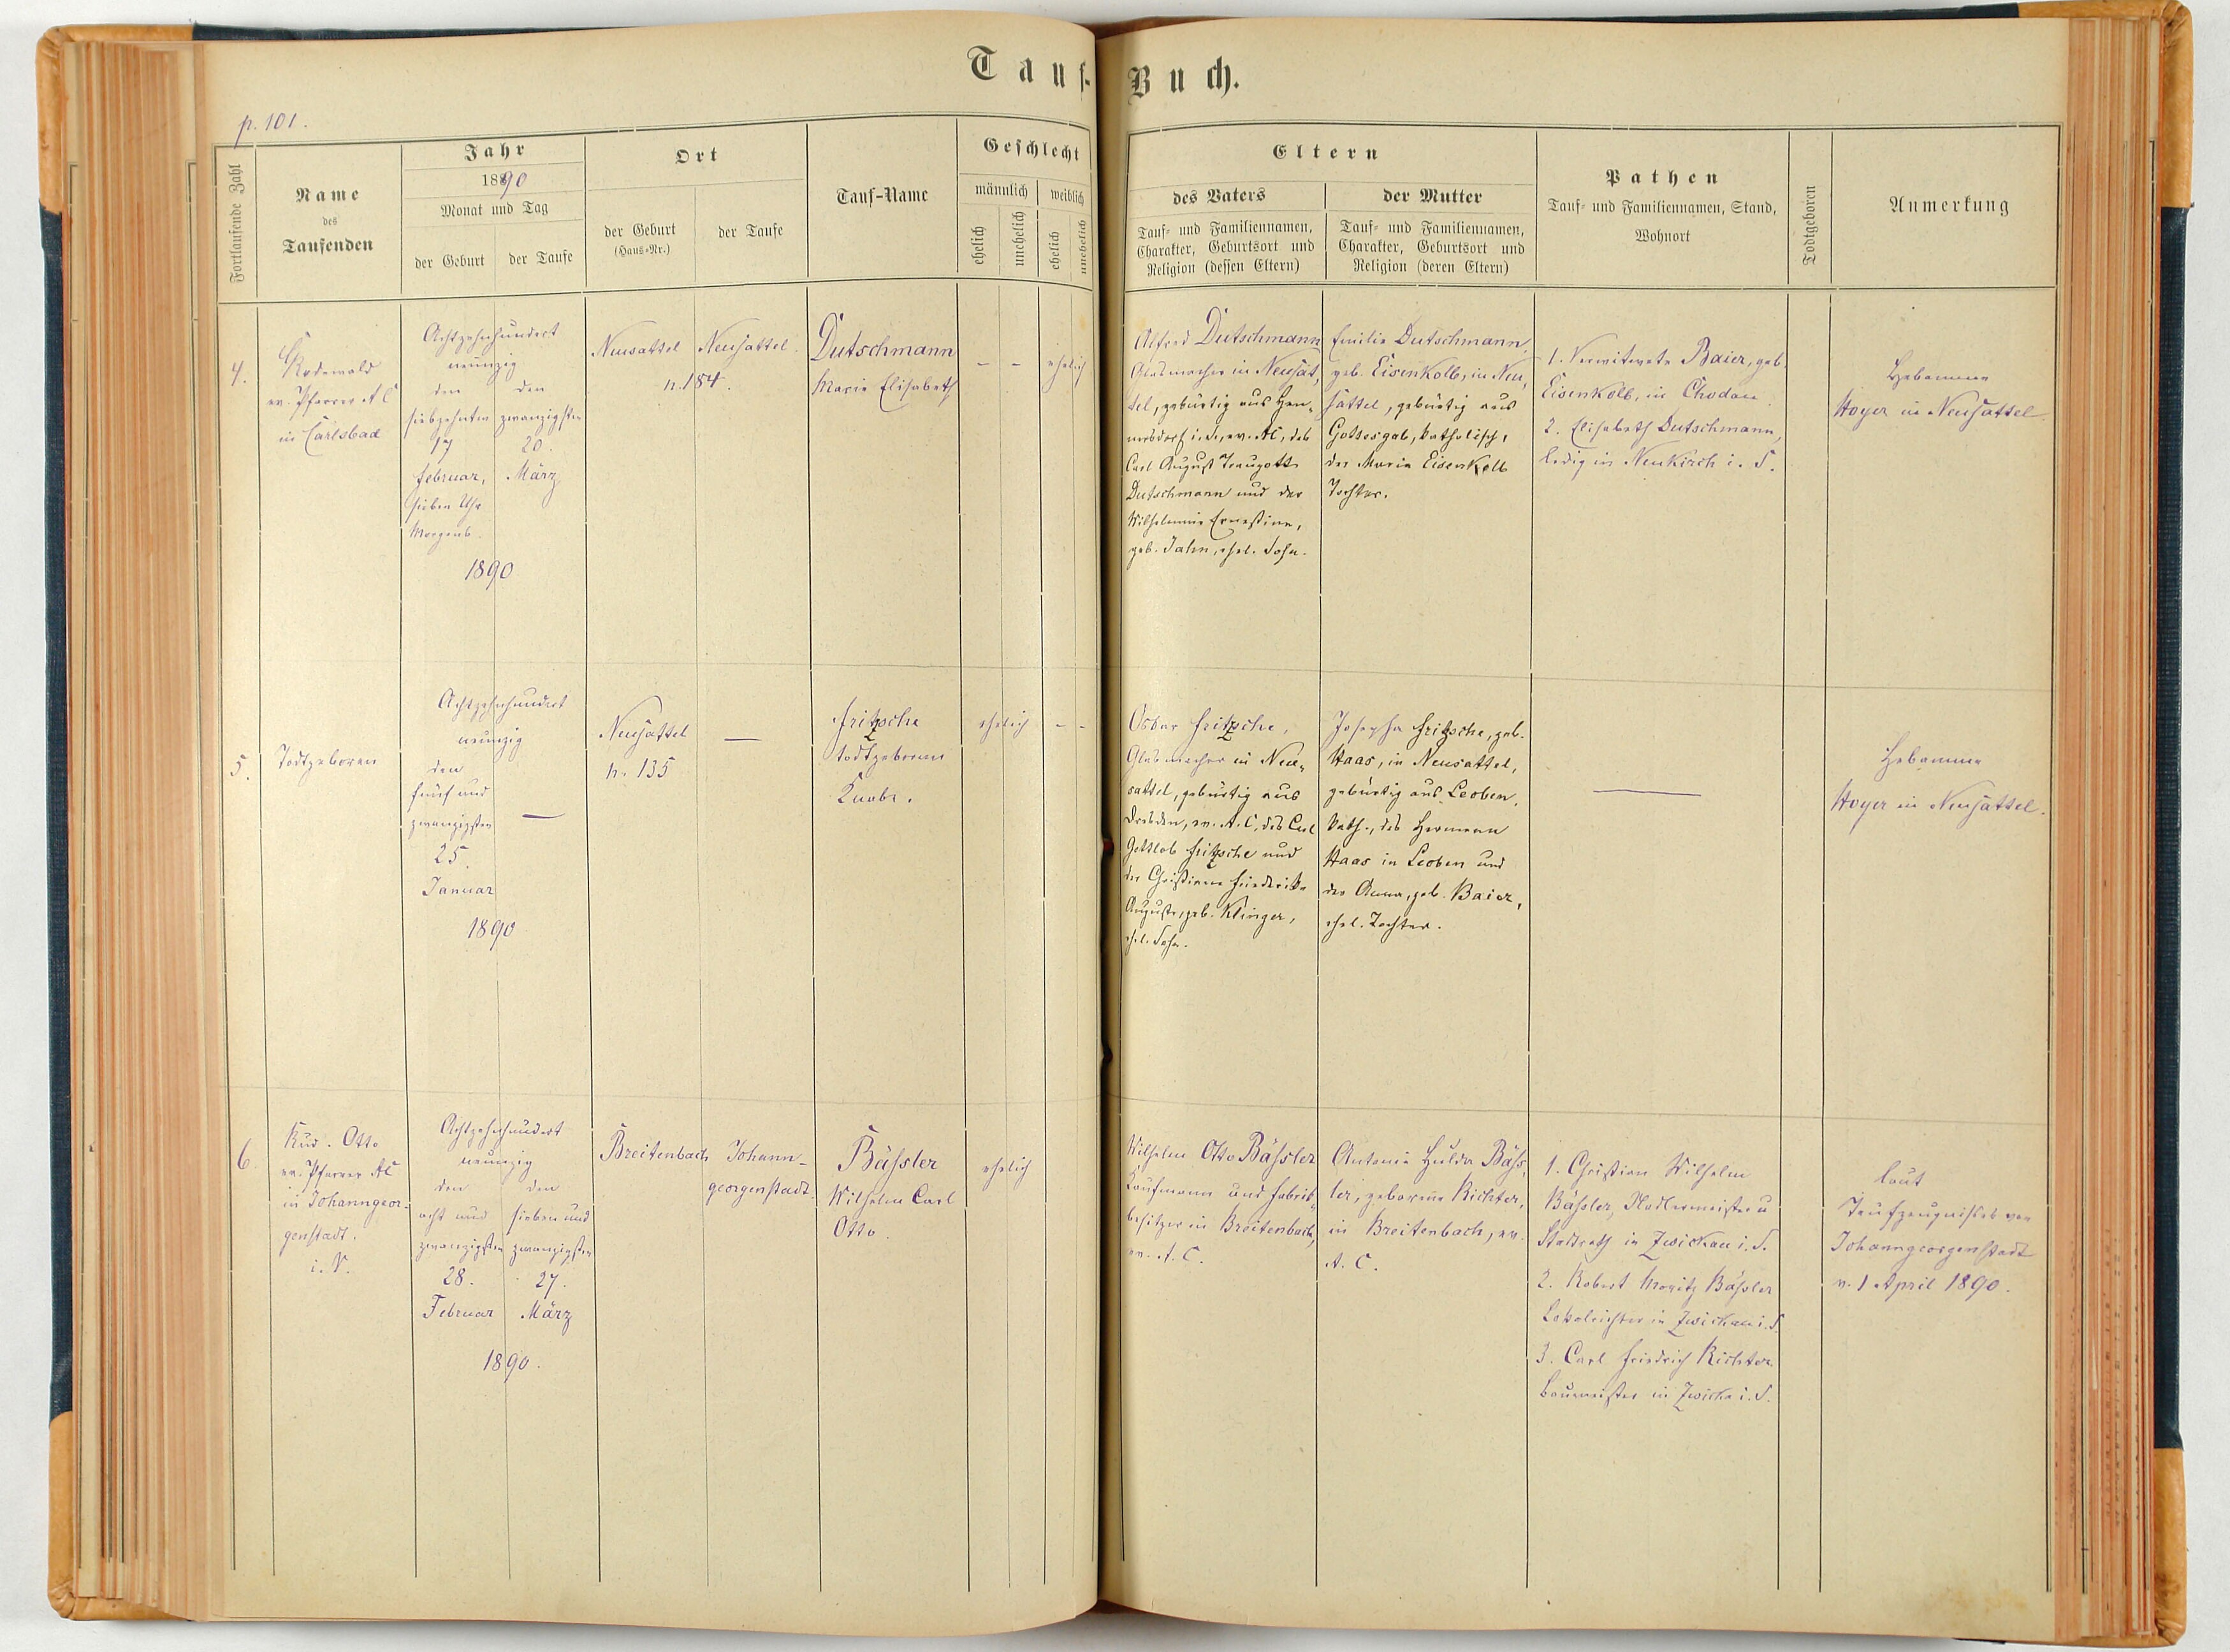 Tauf-Buch.
p. 101.
Fortlaufende Zahl
Name
des
Taufenden
Jahr
1890
Monat und Tag
der Geburt
der Taufe
Ort
der Geburt
(Haus-Nr.)
der Taufe
Tauf-Name
Geschlecht
männlich
weiblich
ehelich
unehelich
ehelich
unehelich
Eltern
des Vaters
Tauf- und Familiennamen,
Charakter, Geburtsort und
Religion (dessen Eltern)
der Mutter
Tauf- und Familiennamen,
Charakter, Geburtsort und
Religion (deren Eltern)
Pathen
Tauf- und Familiennamen, Stand,
Wohnort
Todtgeboren
Anmerkung
4.
Rodewald
ev. Pfarrer A C
in Carlsbad
Achtzehnhundert
neunzig
den
siebzehnten
17
Februar,
sieben Uhr
Morgens.
den
zwanzigsten
20.
März
1890
Neusattel
Neusattel
n. 184.
Dutschmann
Marie Elisabeth
– –
ehelich
Alfred Dutschmann
Glasmacher in Neusat,
tel, gebürtig aus
i. S., ev. AC, des
Carl August Traugott
Dutschmann und der
Wilhelmine Ernestine,
geb. Jahn, ehel. Sohn.
Emilie Dutschmann,
geb. Eisenkolb, in Neu,
sattel, gebürtig aus
Gottesgab, katholisch,
der Maria Eisenkolb
Tochter.
1. Verwitwete Baier, geb.
Eisenkolb, in Chodau.
2. Elisabeth Dutschmann,
ledig in Neukirch i. S.
Hebamme
Hoyer in Neusattel
5.
Todtgeboren
Achtzehnhundert
neunzig
den
fünf und
zwanzigsten
25.
Januar
—
1890
Neusattel
n. 135
—
Fritzsche
todtgeborener
Knabe.
ehelich
– –
Oskar Fritzsche,
Glasmacher in Neu,
sattel, gebürtig aus
Dresden, ev. A. C, des Carl
Gottlob Fritzsche und
der Christiane Friederike
Auguste, geb. Klinger,
ehel. Sohn.
Josepha Fritzsche, geb.
Haas, in Neusattel,
gebürtig aus Leoben,
kath., des Hermann
Haas in Leoben und
der Anna, geb. Baier,
ehel. Tochter.
—
Hebamme
Hoyer in Neusattel.
6.
Rud. Otto
ev. Pfarrer AC
in Johanngeor-
genstadt.
Achtzehnhundert
neunzig
den
acht und
zwanzigsten
28.
Februar
den
sieben und
zwanzigsten
27.
März
1890.
Breitenbach
Johann-
georgenstadt.
Bässler
Wilhelm Carl
Otto.
ehelich
Wilhelm Otto Bässler
Kaufmann und Fabrik-
besitzer in Breitenbach,
ev. A. C.
Antonie Hulda Bäss,
ler, geborene Richter,
in Breitenbach, ev.
A. C.
1. Christian Wilhelm
Bässler, Nadlermeister u
Stadtrath in Zwickau i. S.
2. Robert Moritz Bässler
Lokalrichter in Zwickau i. S.
3. Carl Friedrich Richter
Baumeister in Zwicka i. S.
laut
Taufzeugnisses von
Johanngeorgenstadt
v. 1 April 1890.